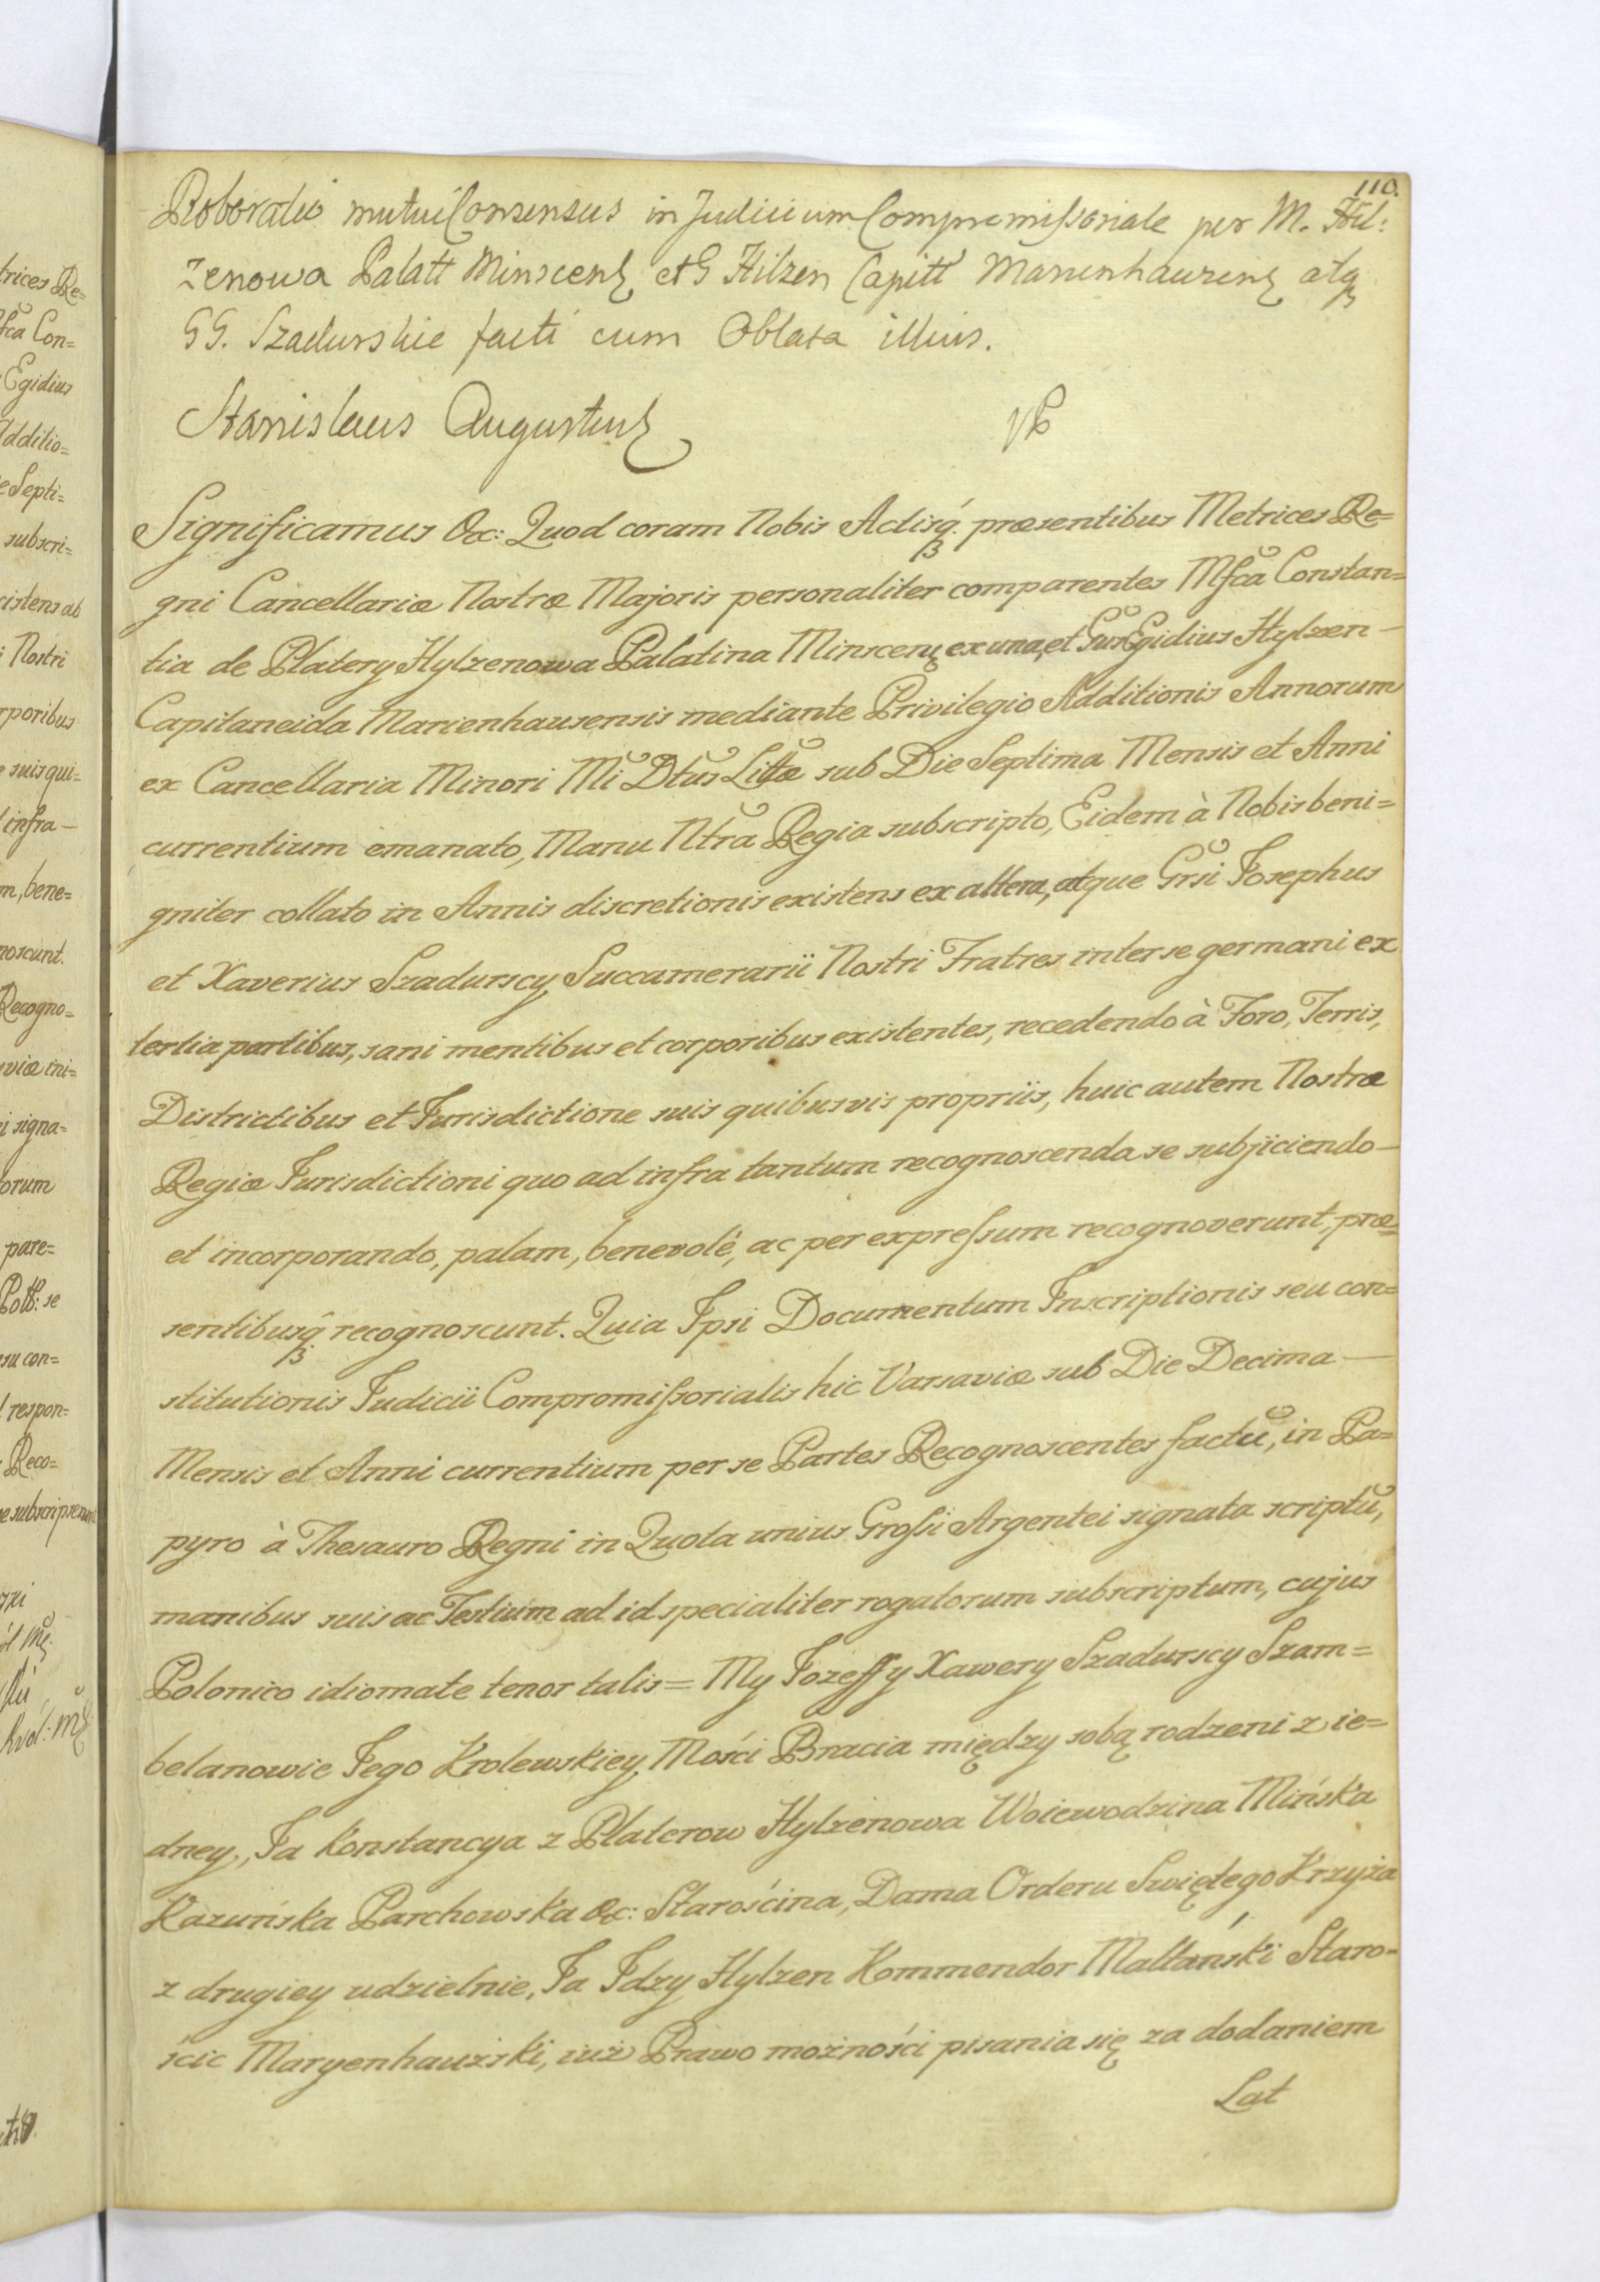 110.
Roboratio mutui Consensus in Judicium Compromissoriale per M. Hil:
zenowa Palatt Minscens et G Hilzen Capitt Marienhauzens atq
GG. Szadurskie facti cum Oblata illius.
Stanislaus Augustus
Significamus &c: Quod coram Nobis Actisq. præsentibus Metrices Re=
gni Cancellariæ Nostræ Majoris personaliter comparentes Mfca Constan=
tia de Platery Hylzenowa Palatina Minscens ex una, et Gsus Egidius Hylzen —
Capitaneida Marienhausensis mediante Privilegio Additionis Annorum
ex Cancellaria Minori Mi Dtus Littæ sub Die Septima Mensis et Anni
currentium emanato, Manu Ntra Regia subscripto, Eidem à Nobis beni=
gniter collato in Annis discretionis existens ex altera, atque Grsi Josephus
et Xaverius Szadurscy Succamerarii Nostri Fratres inter se germani ex
tertia partibus, sani mentibus et corporibus existentes, recedendo à Foro, Terris,
Districtibus et Jurisdictione suis quibusvis propriis, huic autem Nostræ
Regiæ Jurisdictioni quo ad infra tantum recognoscenda se subjiciendo —
et incorporando, palam, benevolé, ac per expressum recognoverunt, præ=
sentibusq recognoscunt. Quia Ipsi Documentum Inscriptionis seu con=
stitutionis Judicii Compromissorialis hic Varsaviæ sub Die Decima —
Mensis et Anni currentium per se Partes Recognoscentes factū, in Pa=
pyro à Thesauro Regni in Quota unius Grossi Argentei signata scriptū,
manibus suis ac Testium ad id specialiter rogatorum subscriptum, cujus
Polonico idiomate tenor talis = My Jozeff y Xawery Szadurscy Szam=
belanowie Jego Krolewskiey Mości Bracia między sobą rodzeni z ie=
dney, Ja Konstancya z Platerow Hylzenowa Woiewodzina Mińska
Kazuńska Parchowska &c: Starościna, Dama Orderu Swiętego Krzyża
z drugiey udzielnie, Ja Idzy Hylzen Kommendor Maltański Staro=
ścic Maryenhauzski, iuż Prawo możności pisania się za dodaniem
Lat
trices Re=
fca Con=
Egidius
Additio=
e Septi=
subscri=
cistens ab
i Nostri
rporibus
e suis qui=
infra —
m, bene=
noscunt.
Recogno=
viæ ini=
i signa=
orum
pare=
Pott: se
su con=
respon=
Reco=
e subscripserunt